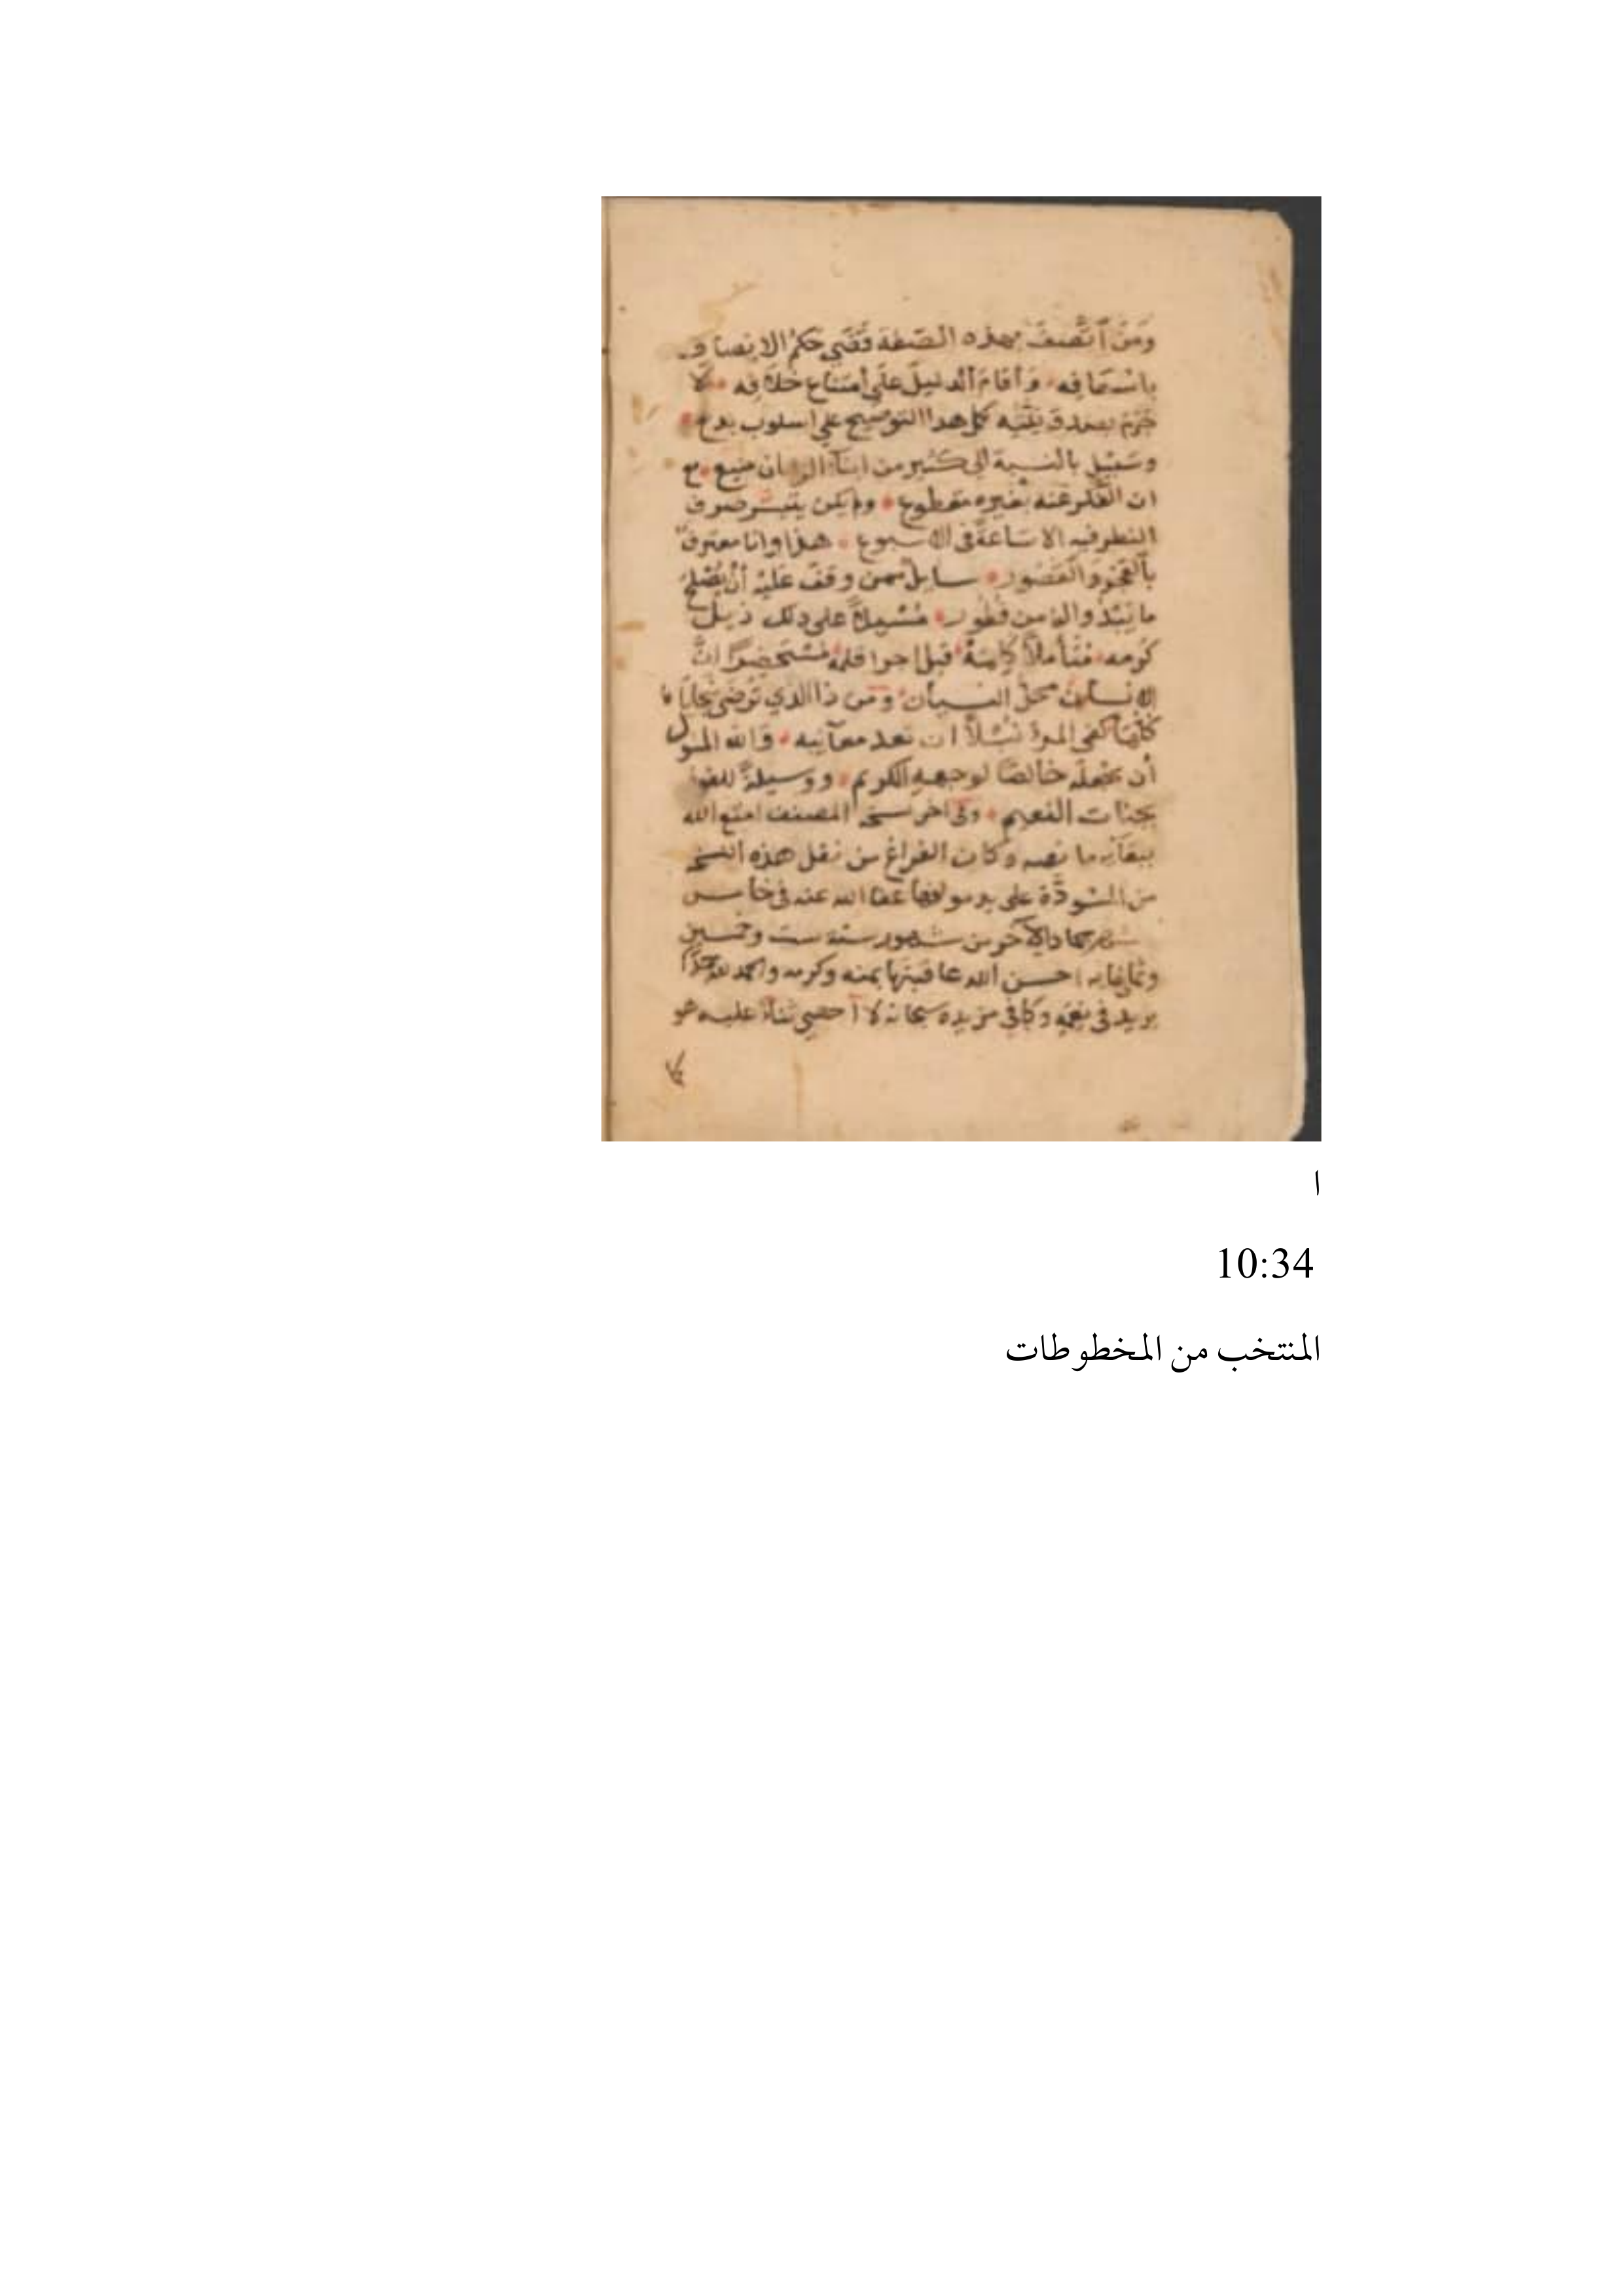 ومن اتَّصفَ بهذه الصّفة قضَى حكمُ الانصاف
باسْعَافِه وأقامَ الدليلَ على امتناع خلافِه لا
جَرَمَ بعد كل هذا التوضيح على اسلوب بديع
وسَبيْلٍ بالنسبة الى كثير من ابناء الزمان منيع مع
ان الفكر عنه بغيره مقطوع ولم يكن يتيسر صرف
النظر فيه الا سَاعةً في الاسبوع هذا وانا معترفٌ
بالعَجْز والقصُور سايلٌ ممن وقفَ عَليْه أن يُصْلح
ما يَبْدُو له من فُطُور مُسْبِلاً على ذلك ذيل
كَرَمه مُتأملاً قبل اجرا قلمه مُسْتَحضِرًا انَّ
الانسان محلّ النسيان ومن ذا الذي تُرضَى سجَايَا
كلُّهَا كفى المرءَ نُبْلاً ان تعد معآيبه والله المسول
أن يجْعلَه خالصًا لوجههِ الكريم ووسيلةً للفو
بجنات النعيم وفي اخر نسخة المصنف امتع الله
ببقآئه ما نصه وكان الفراغ من نقل هذه النسخة
من المسْودَّة على يد مولفها عفا الله عنه في خامس
شهر جمادى الآخر من شهور سنة ست وخمسين
وثمانمايه احسن الله عاقبتها بمنه وكرمه والحمد لله حمدًا
يزيد في نِعَمِه وكافي مزيده سبحانه لا أحصي ثناءً عليه هو
كما
ا
10:34
المنتخب من المخطوطات